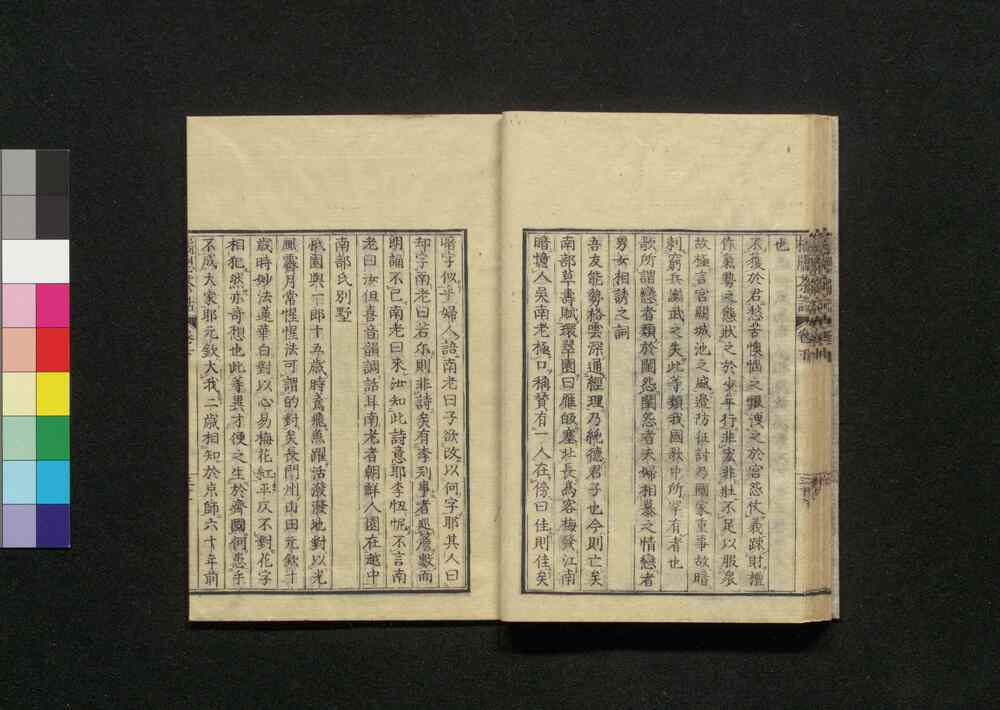 也
不獲於君愁苦懊惱之懷洩之於宮怨仗義踈財擅
作氣勢之態狀之於少年行非宏非壯不足以服衆
故極言宮闕城池之盛邊防征討乃國家重事故暗
刺窮兵黷武之失此等類我國教中所罕有者也
歌所謂戀者類於閨怨閨怨者夫婦相慕之情戀者
男女相誘之詞
吾友能勢格雲深通經理乃純德君子也今則亡矣
南部草壽賦環翠園曰雁皈塞北長爲客梅發江南
暗憶人吳南老極口稱賛有一人在傍曰佳則佳矣
暗字似乎婦人語南老曰子欲改以何字耶其人曰
却字南老曰若尓則非詩矣有李列事者巡簷數而
明誦不已南老曰來汝知此詩意耶李忸怩不言南
老曰汝但喜音韻調話耳南老者朝鮮人園在越中
南部氏別墅
祇園與一郎十五歲時鳶飛魚躍活潑潑地對以光
風霽月常惺惺法可謂的對矣長門州山田元欽十
歲時妙法蓮華白對以心易梅花紅平仄不對花字
相犯然亦奇想也此等異才使之生於齊國何患乎
不成大家耶元欽大我二歲相知於京師六十年前